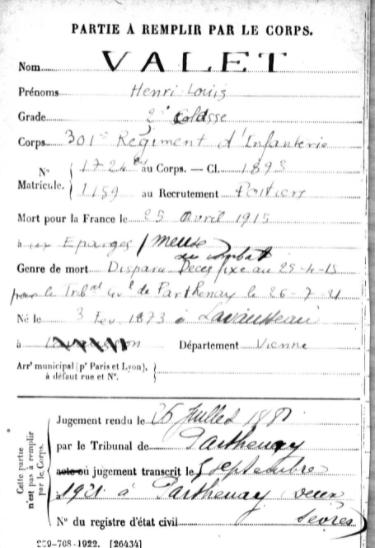 PARTIE À REMPLIR PAR LE CORPS.
Nom VALET
Prénoms Henri Louis
Grade 2e Classe
Corps 301e Régiment d'Infanterie
N° Matricule. 
au Corps. — Cl. 1893
1159 au Recrutement Poitiers
Mort pour la France le 25 Avril 1915
à aux Eparges / Meuse
au combat
Genre de mort Disparu Décès fixé au 25-4-15
par le Tribal Cvl de Parthenay le 26-7-21
Né le 3 Fev. 1873 à Lavausseau
à Département Vienne
Arrt municipal (pr Paris et Lyon), à défaut rue et N°.
Cette partie n'est pas à remplir par le Corps.
Jugement rendu le 26 Juillet
par le Tribunal de Parthenay
acte ou jugement transcrit le 5 septembre
1921 à Parthenay Deux
Sèvres
N° du registre d'état civil
-708-1922. [26434]